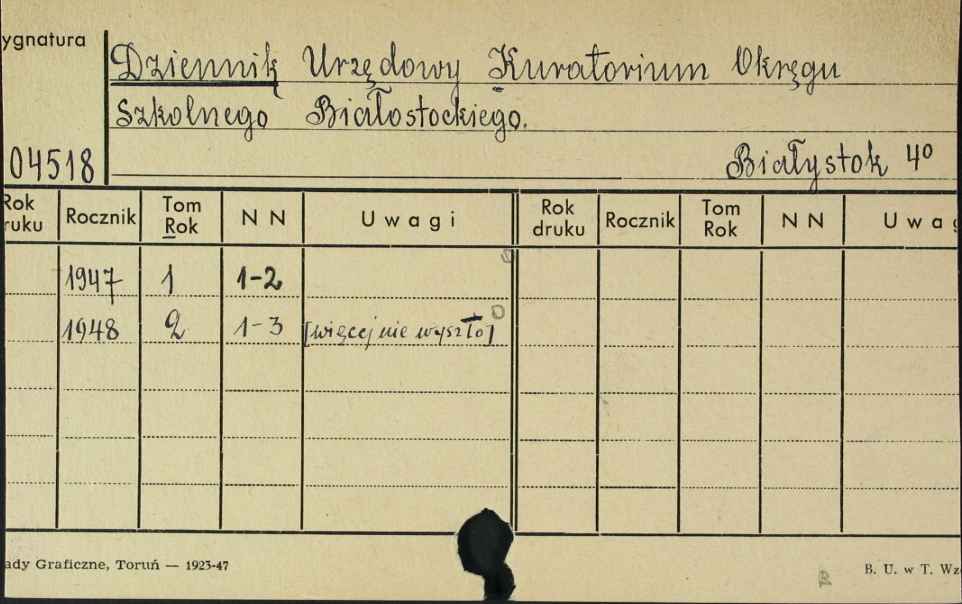 ygnatura
Dziennik Urzędowy Kuratorium Okręgu
Szkolnego Białostockiego.
04518
Białystok 4°
Rok ruku Rocznik Tom Rok N N Uwagi Rok druku Rocznik Tom Rok N N Uwag
1947 1 1-2
1948 2 1-3 [więcej nie wyszło]
ady Graficzne, Toruń — 1923-47
B. U. w T. Wz